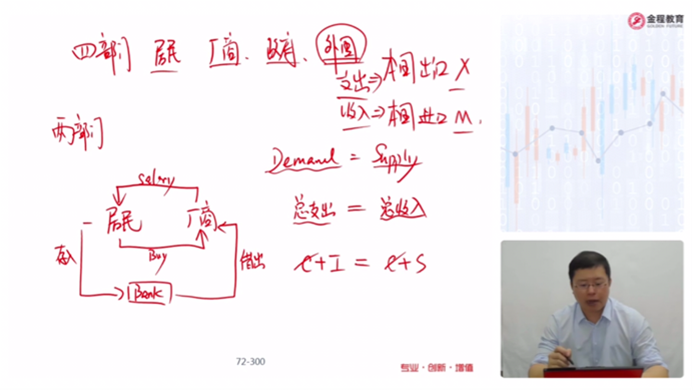 金程教育
GOLDEN FUTURE
四部门 居民 厂商、政府、外国
支出⇒本国出口 X
收入⇒本国进口 M.
两部门
Demand = Supply
Salary
居民 厂商
总支出 = 总收入
Buy
存入
借出
C+I = C+S
Bank
72-300
专业·创新·增值